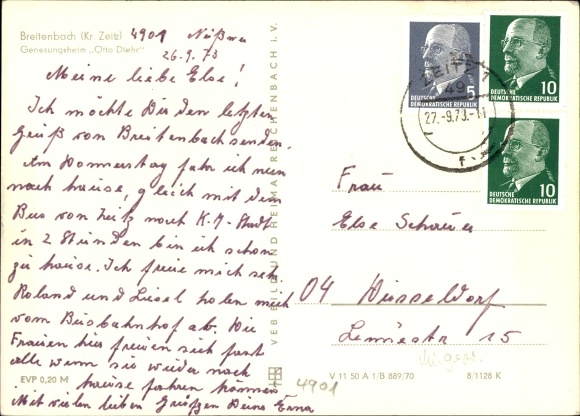 Breitenbach (Kr. Zeitz) 4901
Genesungsheim „Otto Diehr"
26.9.73
Meine liebe Else!
Ich möchte Dir den letzten
Gruß von Breitenbach senden.
Am Donnerstag fahr ich nun
nach hause, gleich mit dem
Bus von Zeitz nach K.-M.-Stadt
in 2 Stunden bin ich schon
zu hause. Ich freue mich sehr
Roland und Liesel holen mich
vom Busbahnhof ab. Die
Frauen hier freuen sich fast
alle wenn sie wieder nach
hause fahren können
Mit vielen lieben Grüßen Deine Erna
EVP 0,20 M
VEB BILD UND HEIMAT REICHENBACH I. V.
5
DEUTSCHE
DEMOKRATISCHE REPUBLIK
10
DEUTSCHE
DEMOKRATISCHE REPUBLIK
10
DEUTSCHE
DEMOKRATISCHE REPUBLIK
ZEITZ 1
49
27.-9.73.-11
f
Frau
Else
04 Düsseldorf
15
V 11 50 A 1/B 889/70 8/1128 K
4901